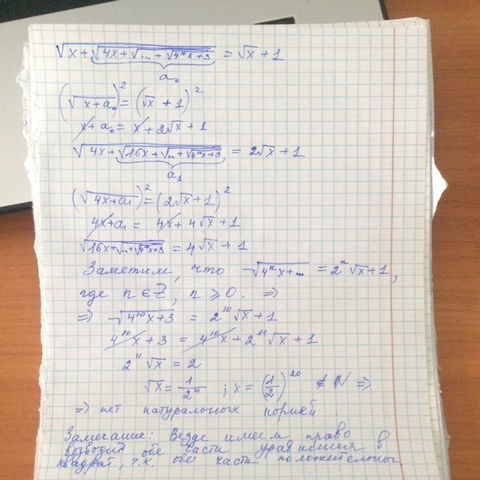 √(x+√(4x+√(...+√(4ⁿx+3)))) = √x+1
a₀
(√(x+a₀))² = (√x+1)²
x+a₀ = x+2√x+1
√(4x+√(16x+√(...+√(4ⁿx+3)))) = 2√x+1
a₁
(√(4x+a₁))² = (2√x+1)²
4x+a₁ = 4x+4√x+1
√(16x+√(...+√(4ⁿx+3))) = 4√x+1
Заметим, что √(4ⁿx+...) = 2ⁿ√x+1,
где n∈Z, n⩾0. ⇒
⇒ √(4¹⁰x+3) = 2¹⁰√x+1
4¹⁰x+3 = 4¹⁰x+2¹¹√x+1
2¹¹√x = 2
√x = 1/2¹⁰ ; x = (1/2)²⁰ ∉ N ⇒
⇒ нет натуральных корней.
Замечание: Везде имеем право
возводить обе части уравнения в
квадрат, т.к. обе части положительны.